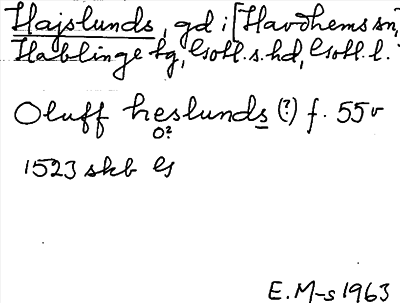 Hajslunds, gd i [Havdhems sn,
Hablinge tg, Gotl. s. hd, Gotl. l.
Oluff heslunds (?) f. 55v
o?
1523 skb G
E. M-s 1963